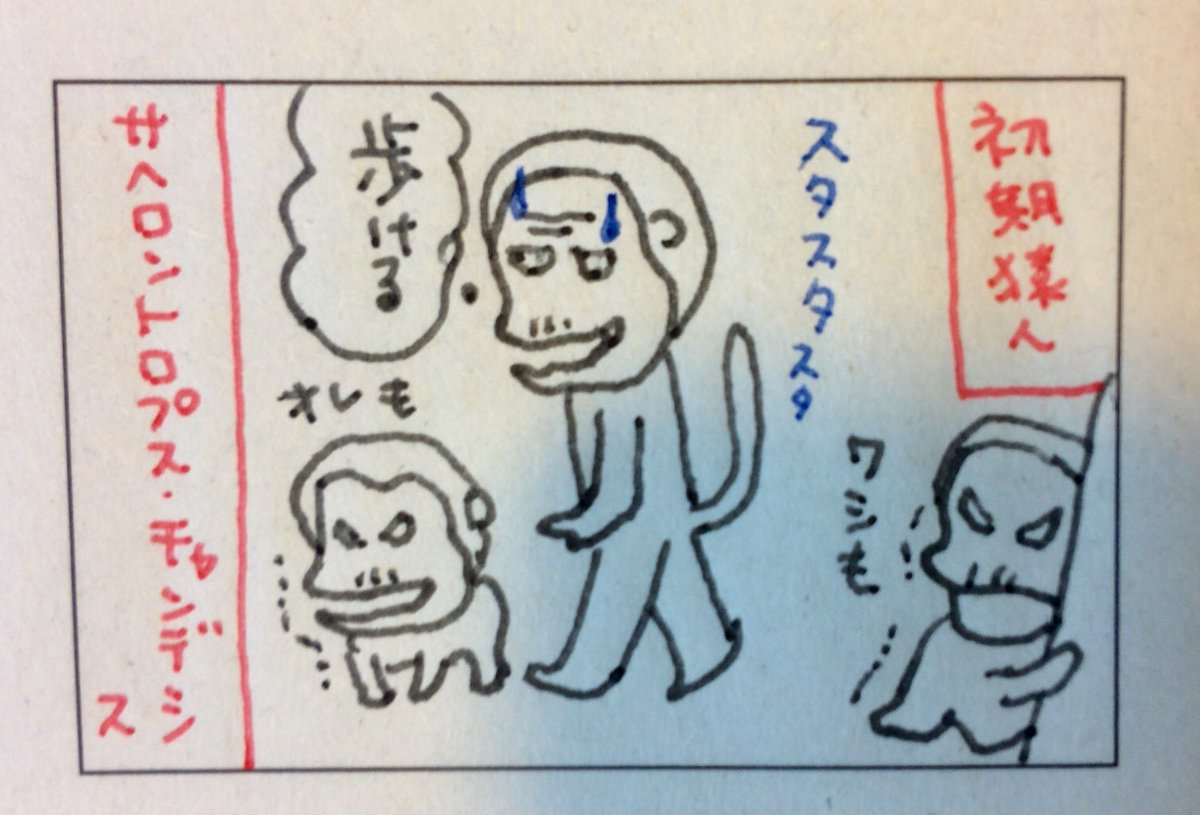 初期猿人
スタスタスタ
ワシも
歩ける
オレも
サヘロントロプス・チャンデンシ
ス